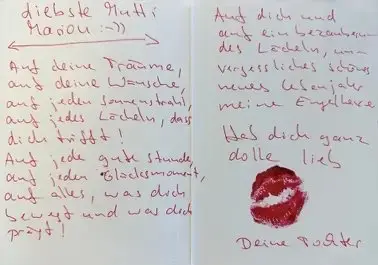 Liebste Mutti
Marion :-))
Auf deine Träume,
auf deine Wünsche,
auf jeden Sonnenstrahl,
auf jedes Lächeln, dass
dich trifft!
Auf jede gute Stunde,
auf jeden Glücksmoment,
auf alles, was dich
bewegt und was dich
prägt!
Auf dich und
auf ein bezauberndes
des Lächeln, un
vergessliches schönes
neues Lebensjahr
meine
Hab dich ganz
dolle lieb
Deine Tochter